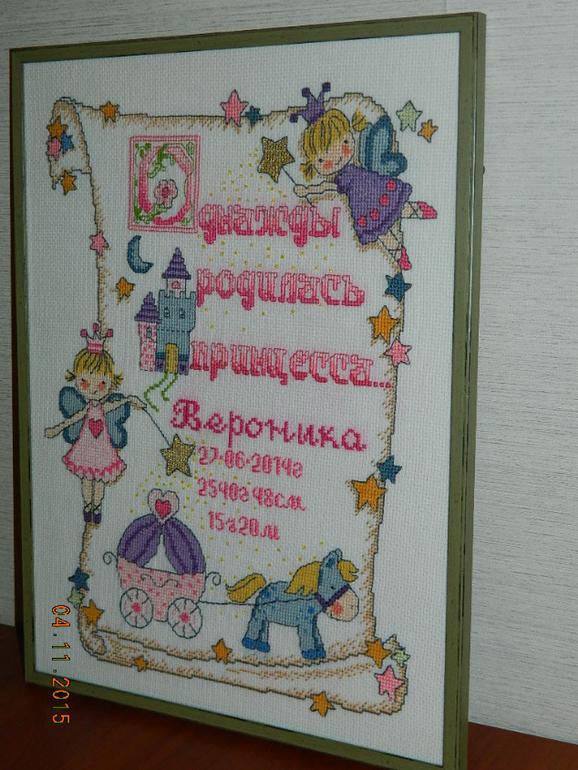 Однажды
родилась
принцесса...
Вероника
27-06-2014г
2540г 48см
15ч20м
04.11.2015